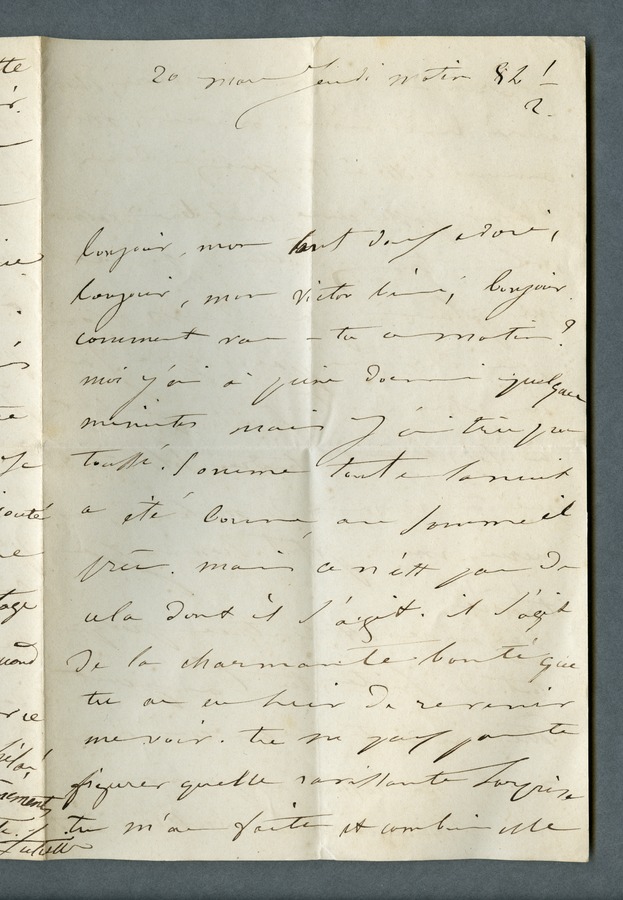 20 mars Jeudi matin 
bonjour, mon tout doux adoré,
bonjour, mon Victor aimé, bonjour.
comment vas-tu ce matin ?
moi j'ai à peine dormi quelques
minutes mais j'ai très peu
toussé. Somme toute la nuit
a été bonne au sommeil
près. mais ce n'est pas de
cela dont il s'agit. il s'agit
de la charmante bonté que
tu as eu hier de revenir
me voir. tu ne peux pas te
figurer quelle ravissante surprise
tu m'as faite et combien elle